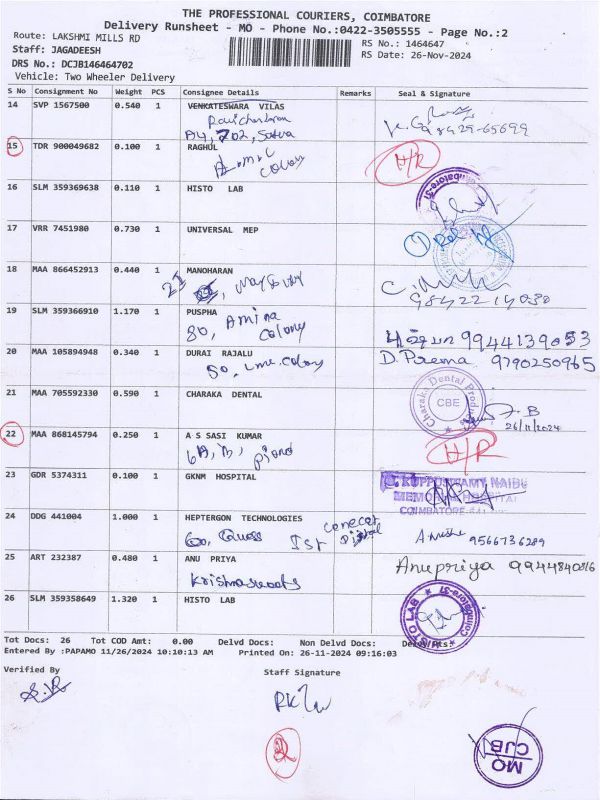 THE PROFESSIONAL COURIERS, COIMBATORE
Delivery Runsheet - MO - Phone No.:0422-3505555 - Page No.:2
Route: LAKSHMI MILLS RD
RS No.: 1464647
Staff: JAGADEESH
RS Date: 26-Nov-2024
DRS No.: DCJB146464702
Vehicle: Two Wheeler Delivery
S No Consignment No Weight PCS Consignee Details Remarks Seal & Signature
14 SVP 1567500 0.540 1 VENKATESWARA VILAS
Ravichandran
A4, 702, Sattva
15 TDR 900049682 0.100 1 RAGHUL H/R
colony
16 SLM 359369638 0.110 1 HISTO LAB
17 VRR 7451980 0.730 1 UNIVERSAL MEP
18 MAA 866452913 0.440 1 MANOHARAN
98422 14030
19 SLM 359366910 1.170 1 PUSPHA
80, Amina colony
9944139053
20 MAA 105894948 0.340 1 DURAI RAJALU D. Prema 9790250965
50, colony
21 MAA 705592330 0.590 1 CHARAKA DENTAL
Charaka Dental Products
CBE
26/11/2024
22 MAA 868145794 0.250 1 A S SASI KUMAR H/R
23 GDR 5374311 0.100 1 GKNM HOSPITAL
G. KUPPUSWAMY NAIDU
MEMORIAL HOSPITAL
COIMBATORE-641
24 DDG 441004 1.000 1 HEPTERGON TECHNOLOGIES
9566736289
25 ART 232387 0.480 1 ANU PRIYA Anupriya 9944840816
26 SLM 359358649 1.320 1 HISTO LAB
Tot Docs: 26 Tot COD Amt: 0.00 Delvd Docs: Non Delvd Docs: Delvd Pts:
Entered By :PAPAMO 11/26/2024 10:10:13 AM Printed On: 26-11-2024 09:16:03
Verified By
Staff Signature
MO
CJB